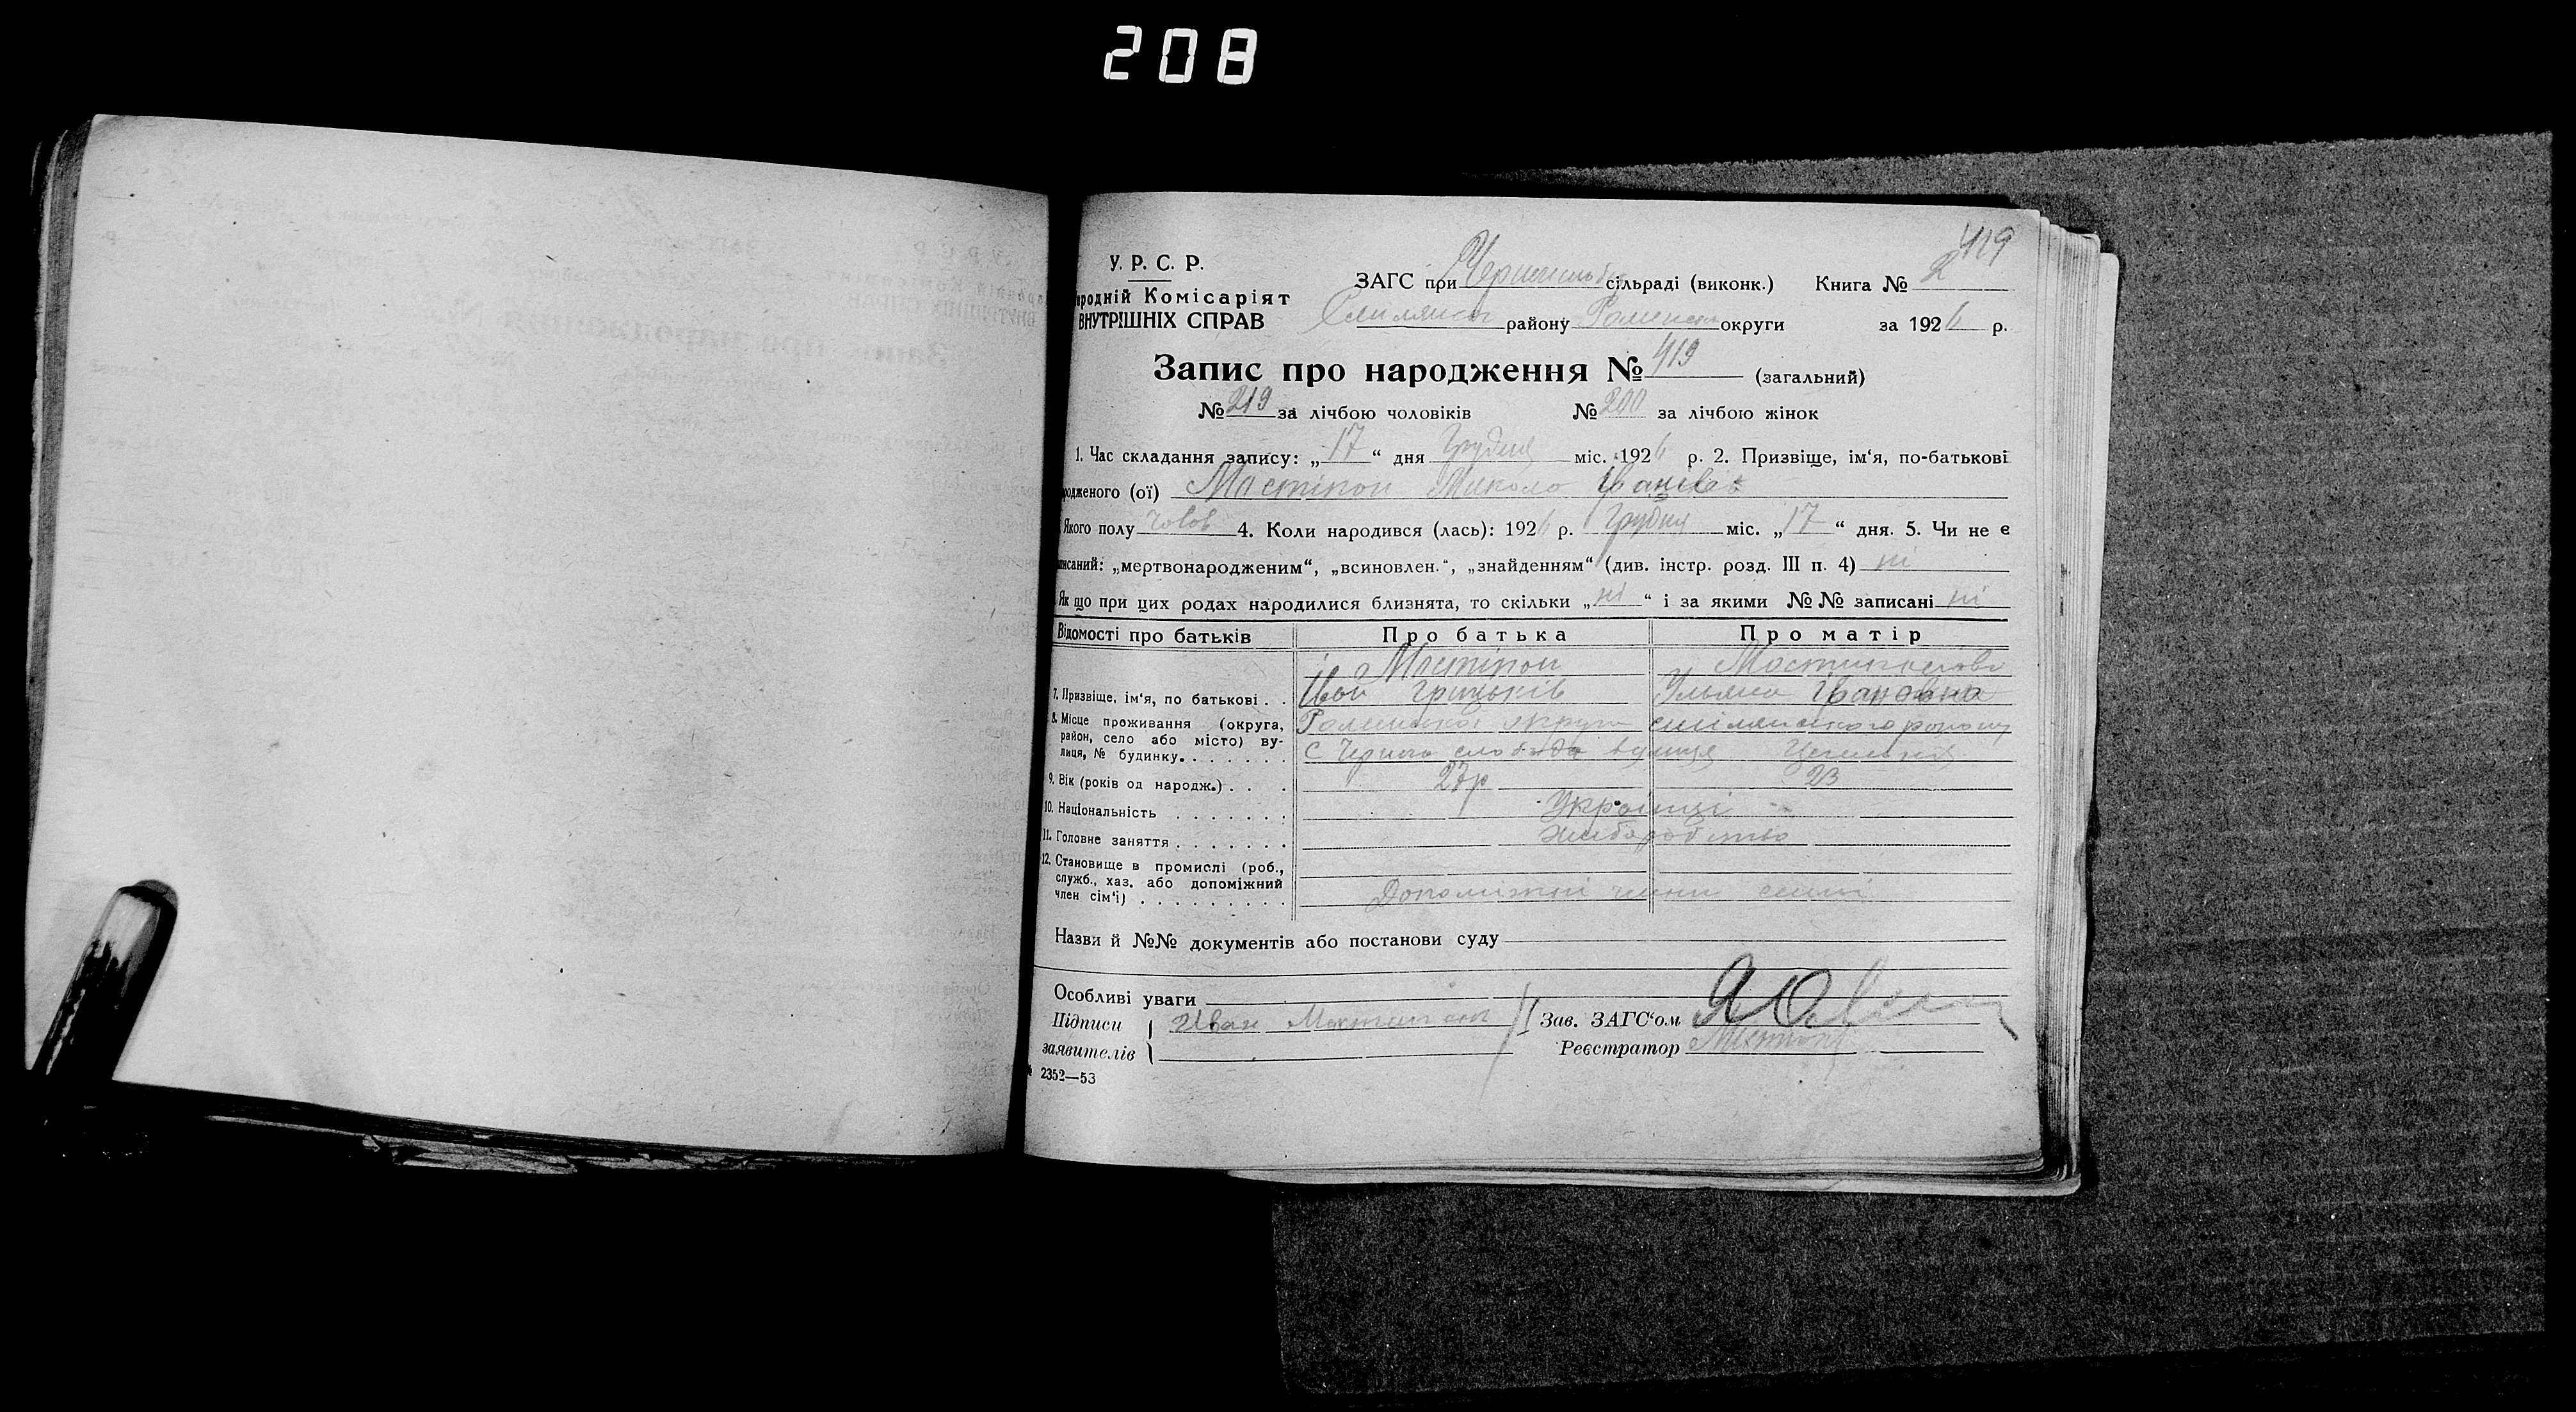 208
419
У. Р. С. Р.
ЗАГС при сільраді (виконк.) Книга № 2
родній Комісаріят
ВНУТРІШНІХ СПРАВ
району Роменськ округи за 1926 р.
Запис про народження № 419 (загальний)
№ 219 за лічбою чоловіків № 200 за лічбою жінок
1. Час складання запису: „ 17 “ дня Грудня міс. 1926 р. 2. Призвіще, ім‘я, по-батькові
родженого (ої) Мастіпон Микола Іванів
Якого полу чолов 4. Коли народився (лась): 1926 р. Грудня міс. „ 17 “ дня. 5. Чи не є
писаний: „мертвонародженим“, „всиновлен.“, „знайденням“ (див. інстр. розд. III п. 4) ні
Як що при цих родах народилися близнята, то скільки „ ні “ і за якими №№ записані ні
Відомості про батьків Про батька Про матір
Мастіпон
7. Призвіще, ім‘я, по батькові . . Іван Грицьків Уляна Івановна
8. Місце проживання (округа, Роменської округи
район, село або місто) ву-
лиця, № будинку. . . . . . . с Черча слобода вулиця
9. Вік (років од народж.) . . . 27р 23
10. Національність . . . . . . . Українці
11. Головне заняття . . . . . . . хліборобство
12. Становище в промислі (роб.,
служб., хаз. або допоміжний
член сім‘ї) . . . . . . . . . Допоміжні члени семі
Назви й №№ документів або постанови суду
Особливі уваги
Підписи Иван Зав. ЗАГС‘ом
заявителів Реєстратор
№ 2352—53